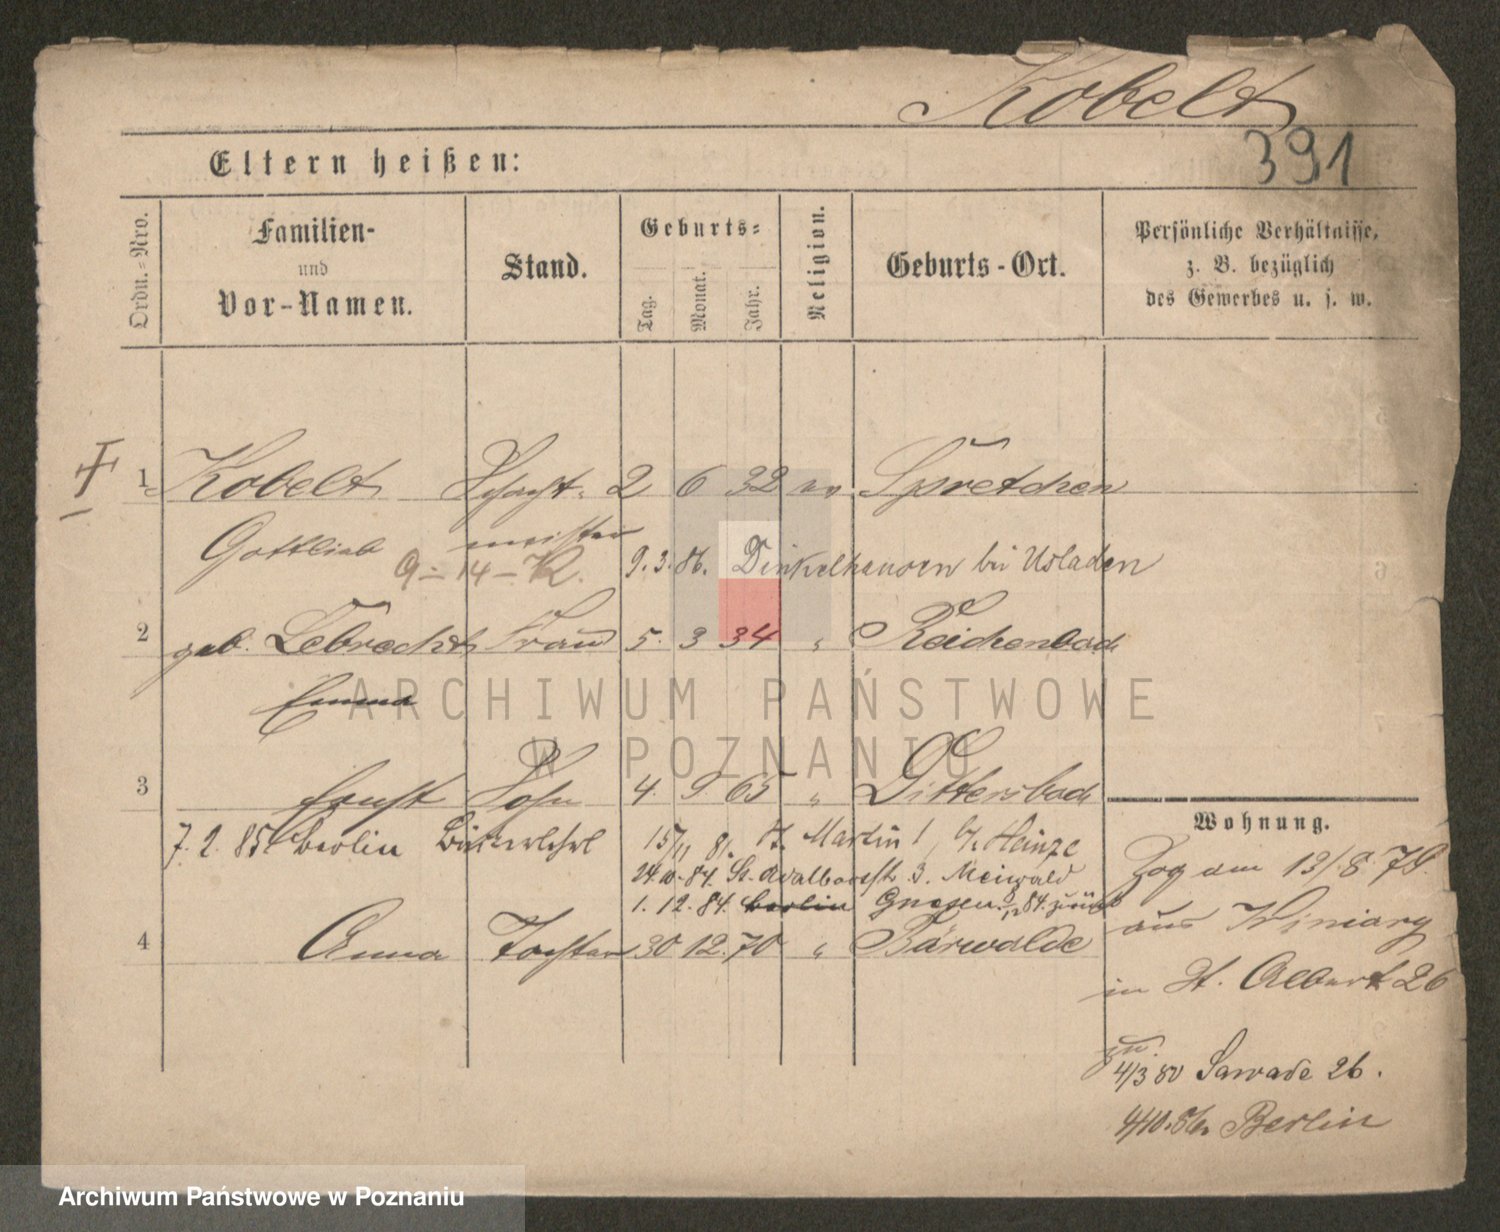 Kobelt
391
Eltern heißen:
Ordn.=Nro.
Familien-
und
Vor-Namen.
Stand.
Geburts=
Tag.
Monat.
Jahr.
Religion.
Geburts-Ort.
Persönliche Verhältnisse,
z. B. bezüglich
des Gewerbes u. s. w.
1 Kobelt Schacht- 2 6 32 ev Spretchen
Gottlieb meister
9.3.86. Dinkelhausen bei Usladen
2 geb. Lebrecht Frau 5. 3 34 " Reichenbach
Emma
3 Ernst Sohn 4. 9 65 " Dittersbach
7.2.85 Berlin
15/11 81. St. Martin 1 b/ Heinze
24.10.84. St. Adalbertstr 3. Meiwald
1.12.84. Berlin Gnesen. zurück
4 Anna Tochter 30 12. 70 " Bärwalde
Wohnung.
Zog am 13/8 78.
aus Winiary
in St. Albert 26
zu.
4/3 80 Sawade 26.
4/10.86. Berlin
ARCHIWUM PAŃSTWOWE
W POZNANIU
Archiwum Państwowe w Poznaniu